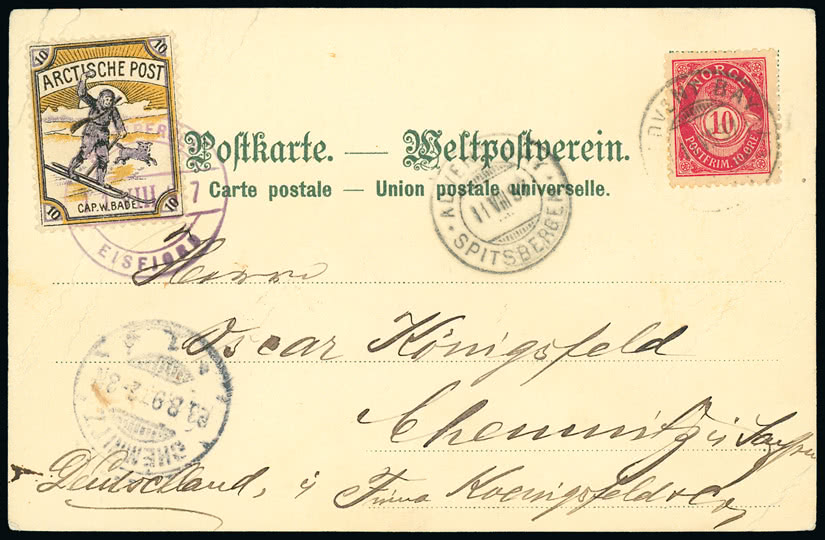 10 10
ARCTISCHE POST
CAP. W. BADE
10 10
EISFJORD
NORGE
10
POSTFRIM. 10 ØRE
Postkarte. — Weltpostverein.
Carte postale — Union postale universelle.
SPITSBERGEN
Herrn
Oscar Königsfeld
Chemnitz i Sachsen
Deutschland, i/ Firma Koenigsfeld & Co
23.8.97
CHEMNITZ